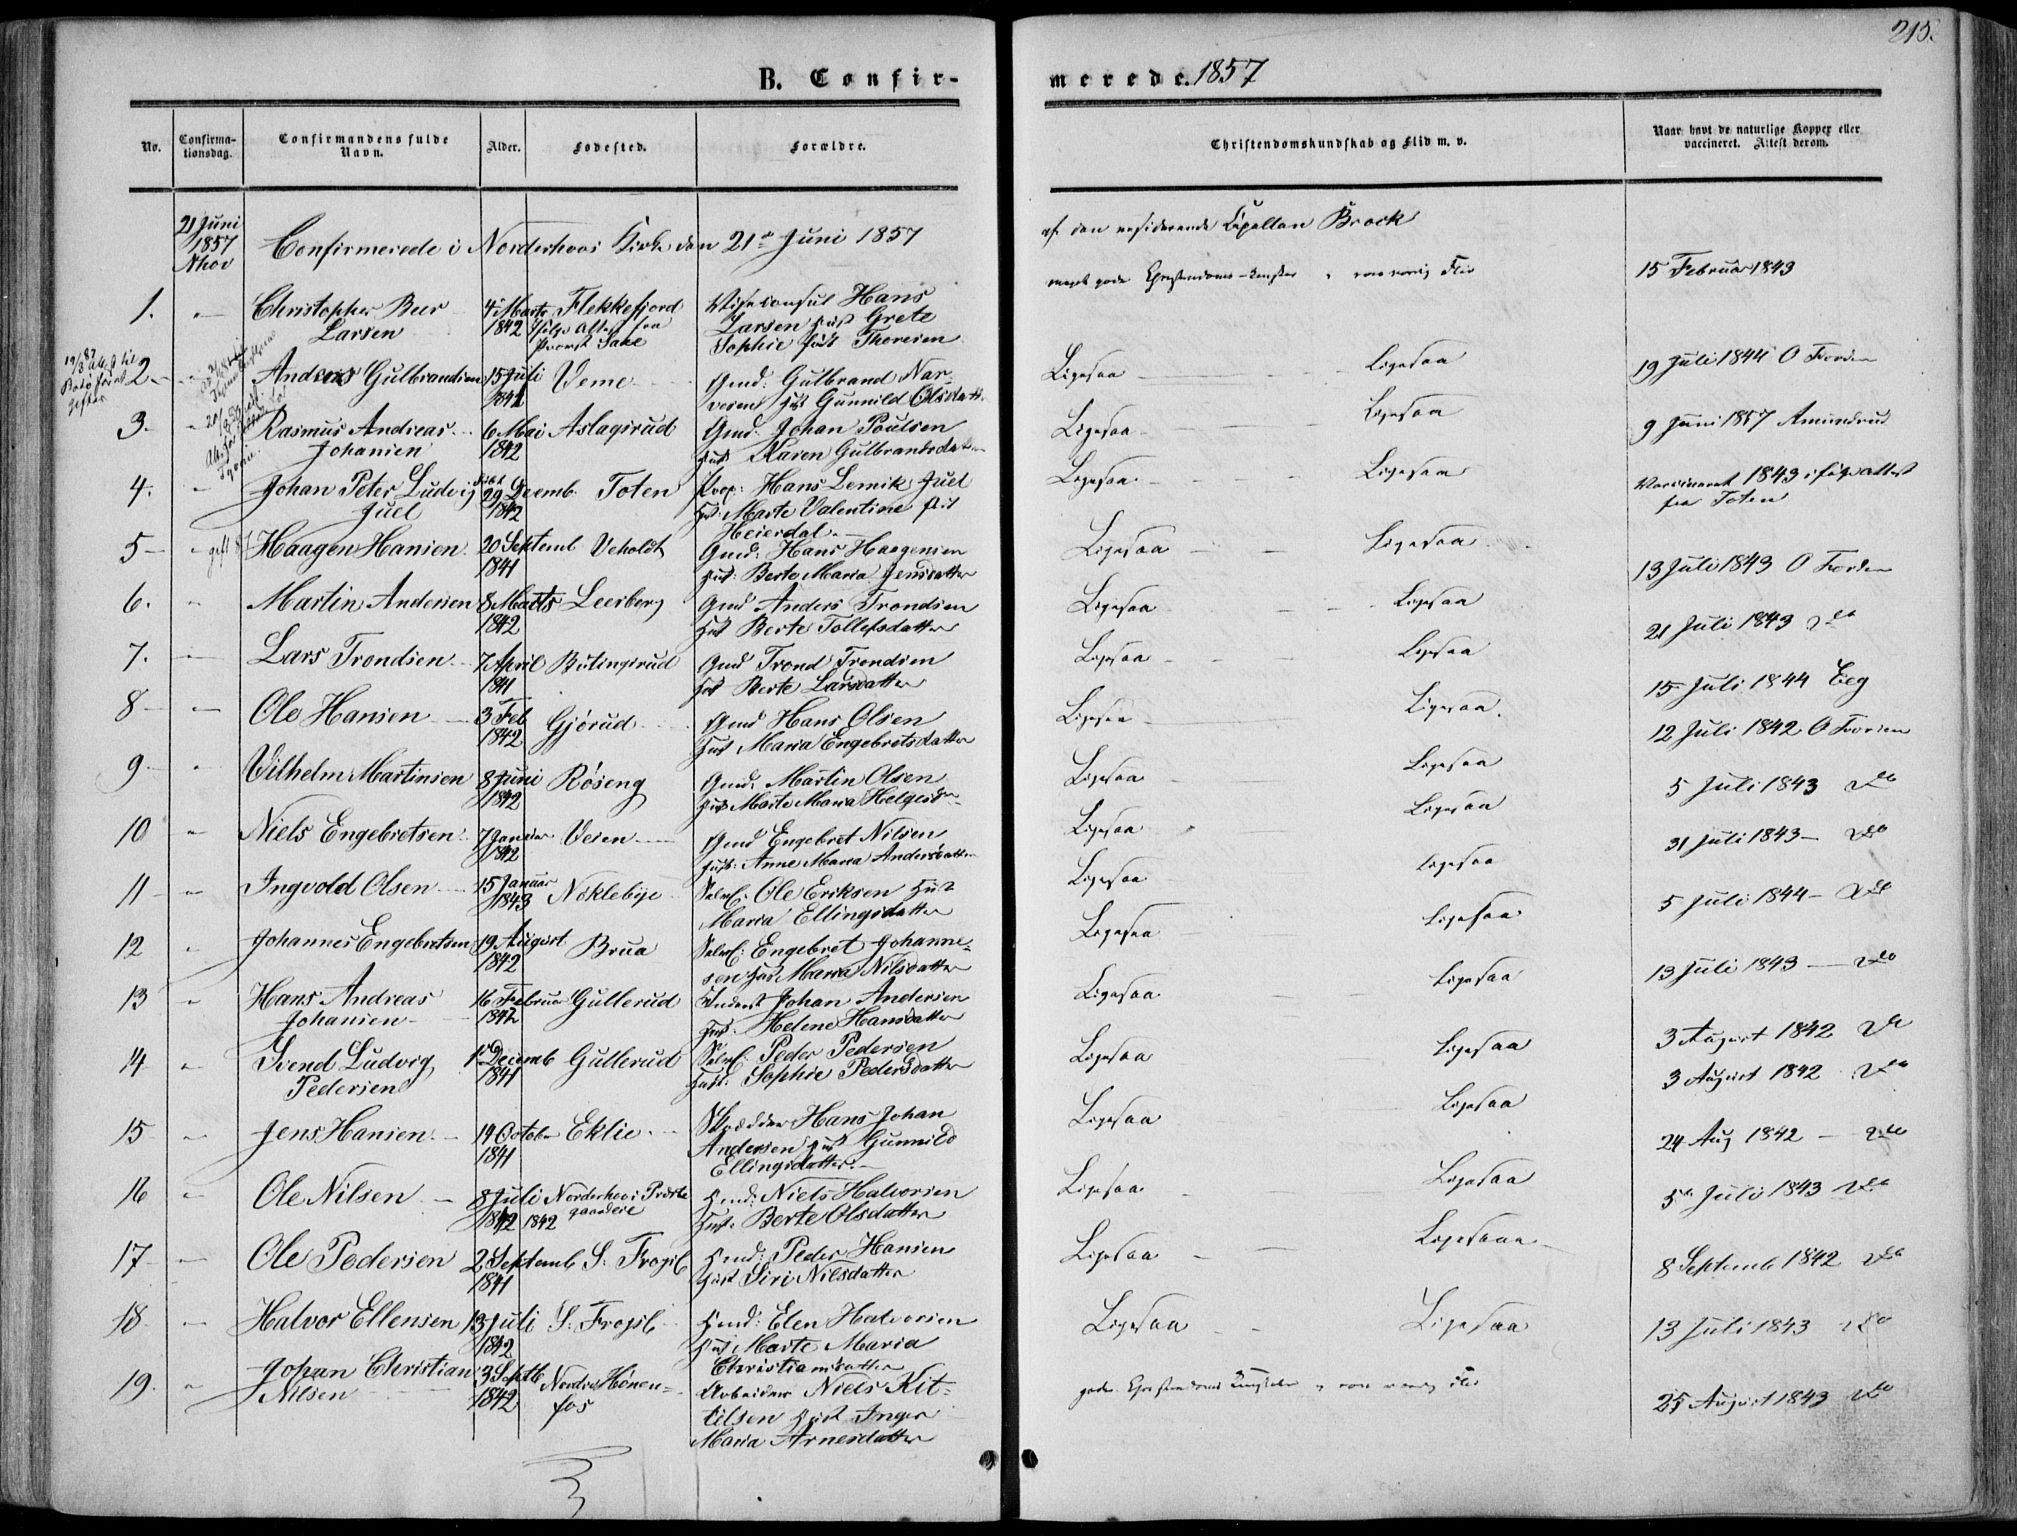 215.
B. Confir-
merede. 1857
No.
Confirma-
tionsdag.
Confirmandens fulde
Navn.
Alder.
Fødested.
Forældre.
Christendomskundskab og Flid m. v.
Naar havt de naturlige Kopper eller
vaccineret. Attest derom.
21 Juni
1857
Nhov
Confirmerede i Norderhovs Kirke den 21de Juni 1857
af den residerende Capellan Brock
1. Christopher Beer
Larsen
4de Marts
1842
Flekkefjord
ifølge Attest fra
Provst
Viceconsul Hans
Larsen Hust Grete
Sophie født Thoresen
meget gode Christendoms-kundskr og rosværdig Flid
15 Februar 1843
2 Anders Gulbrandsen 15 Juli
1842
Veme
Gmd: Gulbrand Nar-
vesen Hust Gunnild Olsdatt.
Ligesaa Ligesaa
19 Juli 1844 O
3. Rasmus Andreas
Johansen
6 Mai
1842
Aslagsrud
Gmd: Johan Poulsen
Hust Karen Gulbrandsdatter
Ligesaa Ligesaa
9 Juni 1857 Amundrud
4. Johan Peter Ludvig
Juel
29 Decemb.
1842
Toten
Prop: Hans Lemik Juel
Hust: Marte Valentine født
Heierdal
Ligesaa Ligesaa
Vaccineret 1843 ifølge attest
fra Toten
5 Haagen Hansen 20 Septemb
1841
Veholdt
Gmd: Hans Haagensen
Hust: Berte Maria Jensdatter
Ligesaa Ligesaa
13 Juli 1843 O
6. Martin Andersen 8 Marts
1842
Leerberg
Gmd Anders Trondsen
Hust Berte Tollefsdatter
Ligesaa Ligesaa
21 Juli 1843 do
7. Lars Trondsen 7 April
1841
Butingsrud
Gmd Trond Trondsen
Hust Berte Larsdatter
Ligesaa Ligesaa
15 Juli 1844 Eeg
8 Ole Hansen 3 Feb
1842
Gjørud
Gmd Hans Olsen
Hust Maria Engebretsdatter
Ligesaa Ligesaa.
12 Juli 1842 O
9 Vilhelm Martinsen 8 Juni
1842
Røseng
Gmd: Martin Olsen
Hust Marte Maria Helgesd
Ligesaa Ligesaa
5 Juli 1843 do
10 Niels Engebretsen 7 Januar
1842
Veien
Gmd Engebret Nilsen
Hust: Anne Maria Andersdatter
Ligesaa Ligesaa
31 Juli 1843 do
11 Ingvold Olsen 15 Januar
1843
Noklebye
Selvei: Ole Eriksen Hust
Maria Ellingsdatter
Ligesaa Ligesaa
5 Juli 1844 do
12 Johannes Engebretsen 19 August
1842
Brua
Selvei: Engebret Johanne-
sen Hust Maria Nilsdatter
Ligesaa Ligesaa
13 Juli 1843 do
13 Hans Andreas
Johansen
16 Februar
1842
Gullerud
Inderst Johan Andersen
Hust: Helene Hansdatter
Ligesaa Ligesaa
3 August 1842 do
14 Svend Ludvig
Pedersen
Decemb
1841
Gullerud
Selvei: Peder Pedersen
Hust: Sophie Pedersdatter
Ligesaa Ligesaa
3 August 1842 do
15 Jens Hansen 19 October
1841
Eklie
Skrædder Hans Johan
Andersen Hust Gunnild
Ellingsdatter
Ligesaa Ligesaa
24 Aug 1842 do
16 Ole Nilsen 8 Juli
1842
Norderhovs Præste
gaardeie
1842
Hmd: Niels Halvorsen
Hust: Berte Olsdatter
Ligesaa Ligesaa
5te Juli 1843 do
17 Ole Pedersen 2 Septemb
1841
S: Frogsl
Hmd: Peder Hansen
Hust Siri Nilsdatter
Ligesaa Ligesaa
8 Septemb 1842 do
18 Halvor Ellensen 13 Juli
1842
S. Frogsl
Hmd: Elen Halvorsen
Hust Marte Maria
Christiansdatter
Ligesaa Ligesaa
13 Juli 1843 do
19. Johan Christian
Nilsen
3 Septb
1842
Nordre Hønen-
fos
Arbeider Niels Kit-
tilsen Hust Inger
Maria Arnesdatter
gode Christendoms Kundskaber og rosværdig Flid
25 August 1843 do